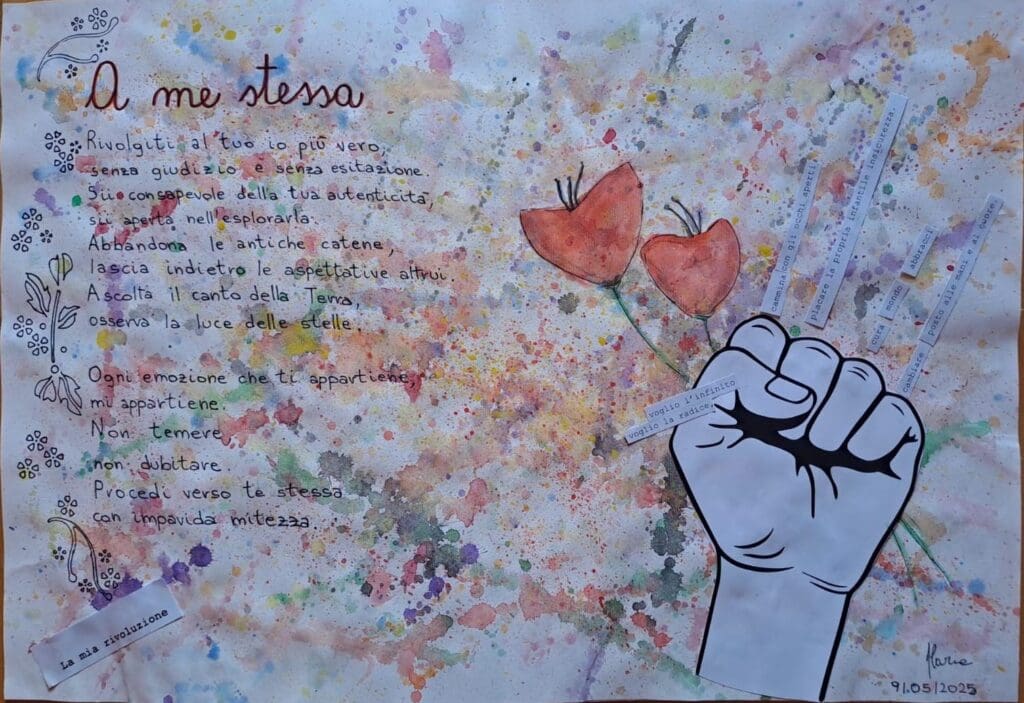 A me stessa
Rivolgiti al tuo io più vero,
senza giudizio e senza esitazione.
Sii consapevole della tua autenticità,
sii aperta nell'esplorarla.
Abbandona le antiche catene,
lascia indietro le aspettative altrui.
Ascolta il canto della Terra,
osserva la luce delle stelle.
Ogni emozione che ti appartiene,
mi appartiene.
Non temere,
non dubitare.
Procedi verso te stessa
con impavida mitezza.
La mia rivoluzione
voglio l'infinito
voglio la radice,
cammina con gli occhi aperti
placare la propria infantile insicurezza.
cura mondo abbracci
cambiate posto alle mani e al cuore